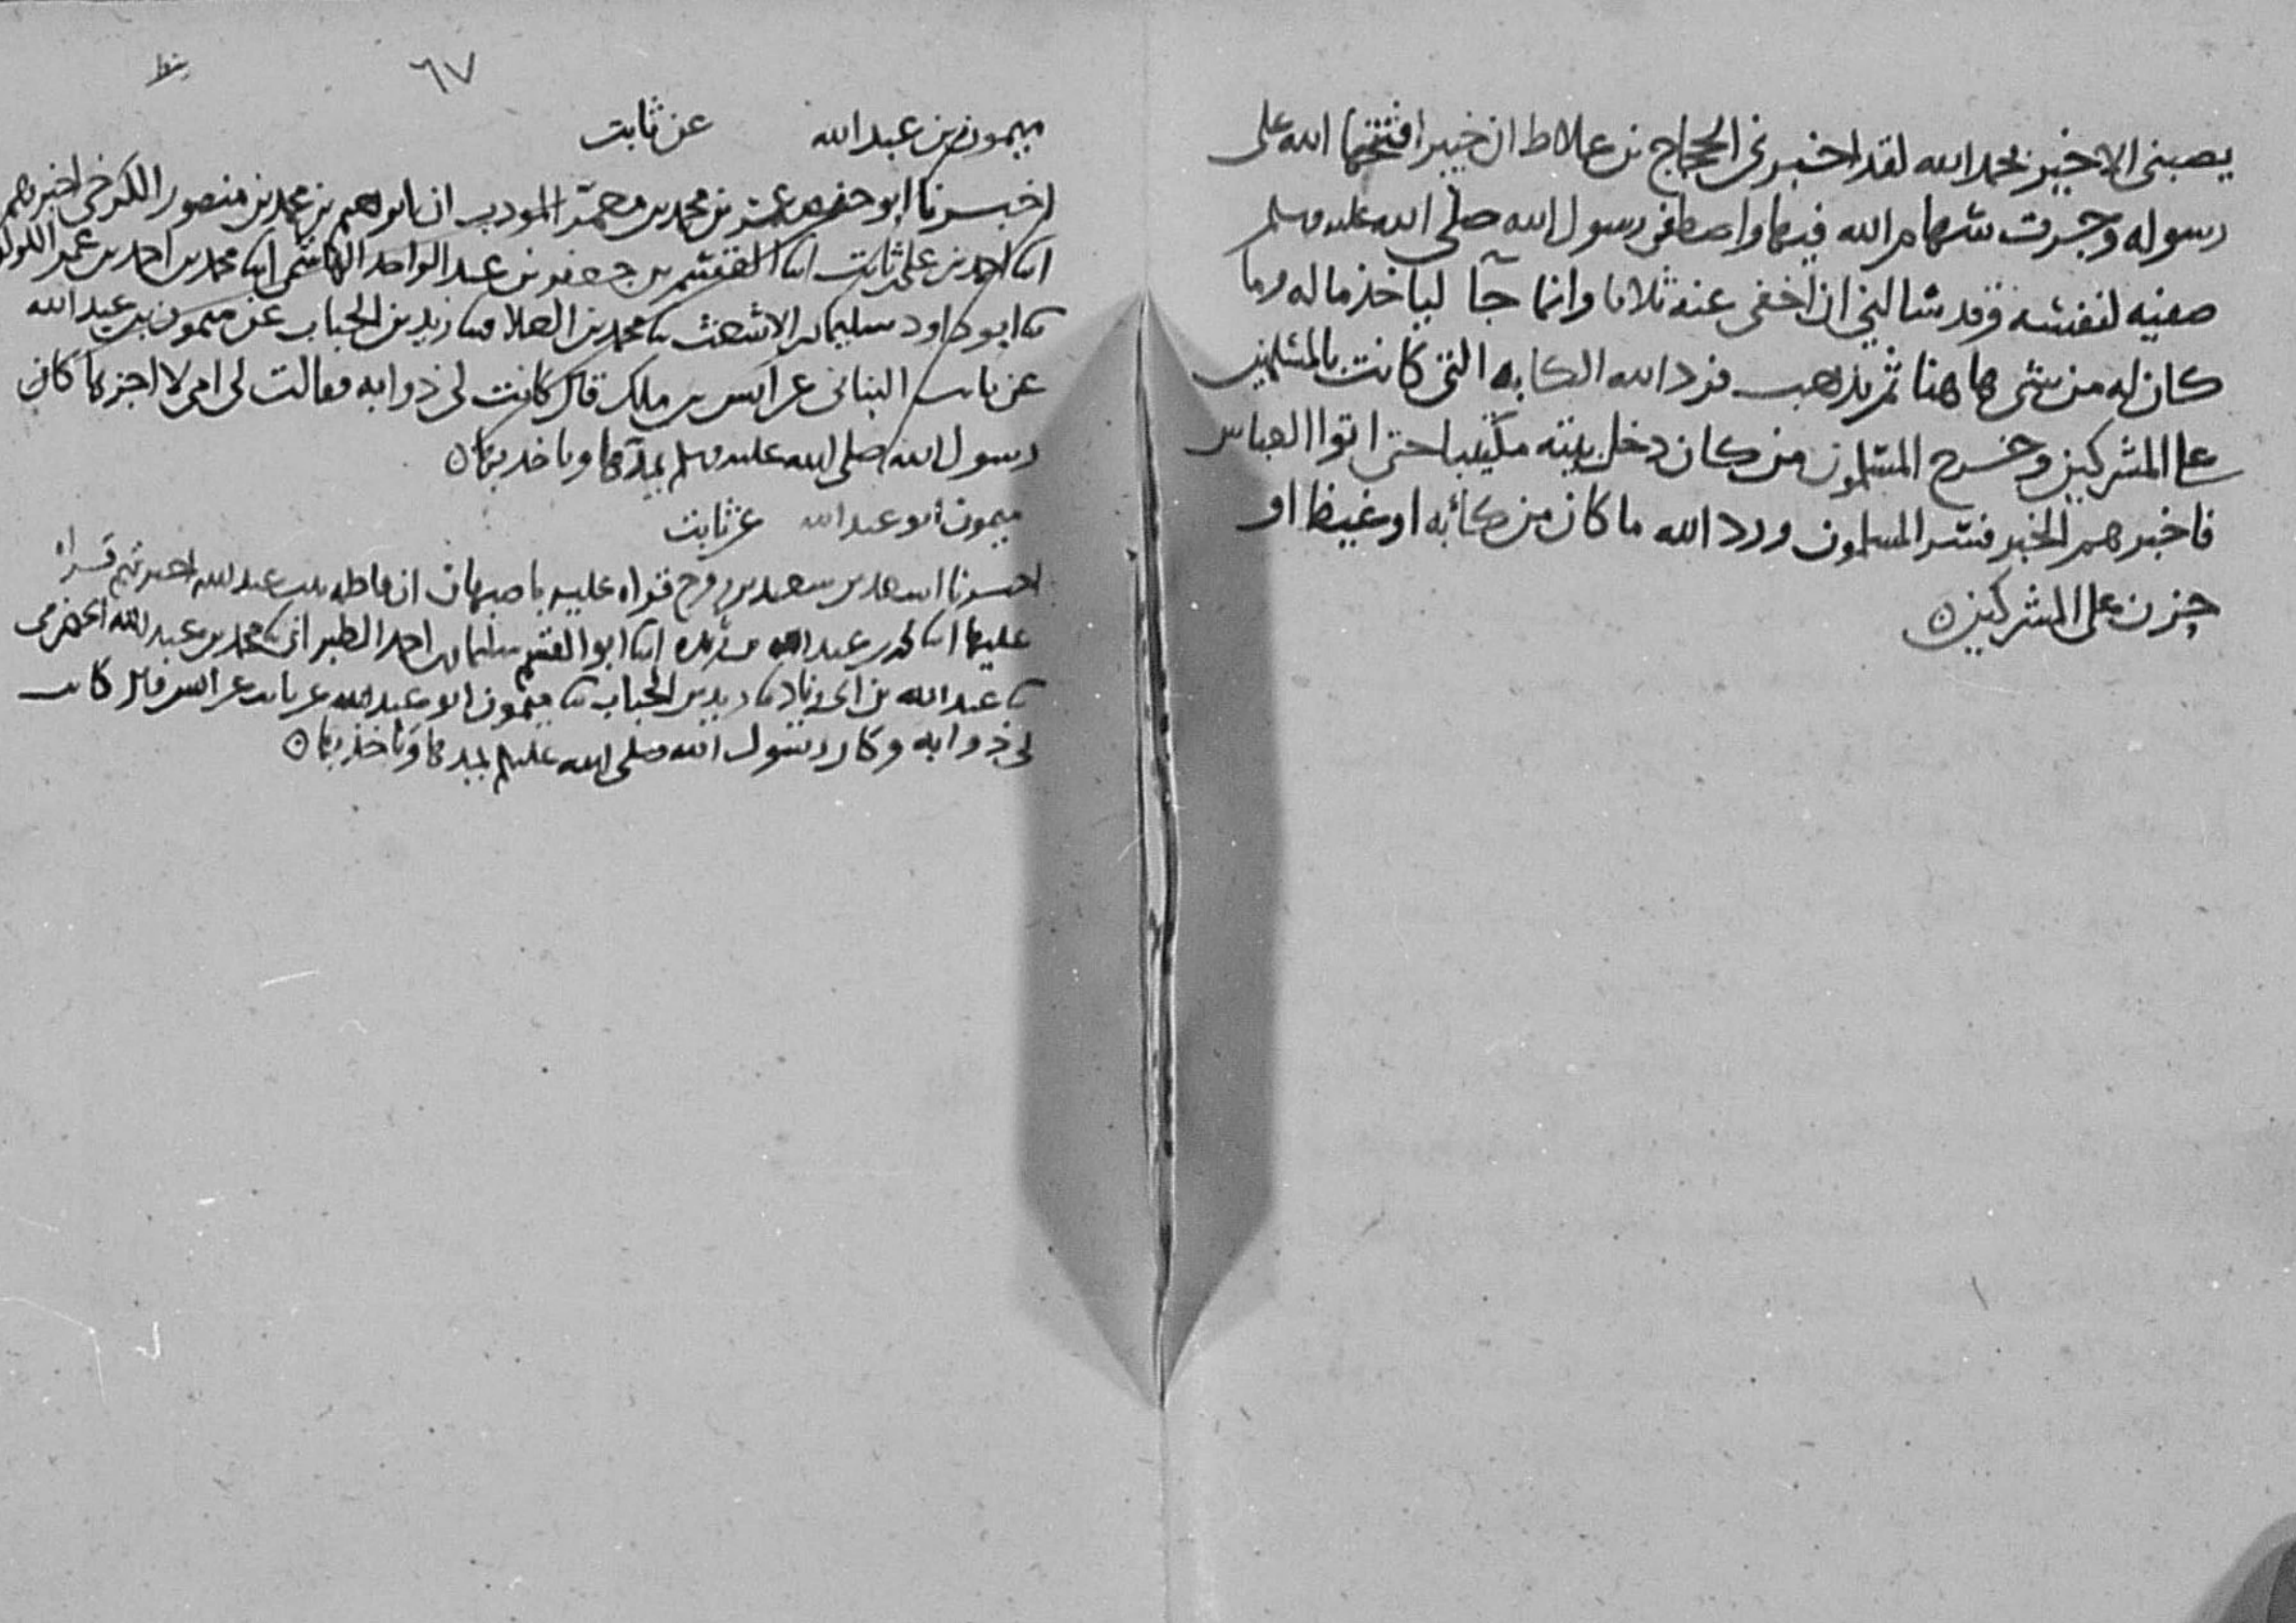 يصبنى الا خير بحمد الله لقد اخبرنى الحجاج بن علاط ان خيبر افتتحها الله على
رسوله وجرت سهام الله فيها واصطفى رسول الله صلى الله عليه وسلم
صفيه لنفسه وقد سالنى ان اخفى عنه ثلاثا وانما جآ لياخذ ماله وما
كان له من شى هاهنا ثم يذهب فرد الله الكابه التى كانت بالمسلمين
على المشركين وخرج المسلمون من كان دخل بيته مكتيبا حتى اتوا العباس
فاخبرهم الخبر فسر المسلمون ورد الله ما كان من كآبه او غيظ او
حزن على المشركين
٦٧
ميمون بن عبد الله عن ثابت
اخبرنا ابو حفص عمر بن محمد بن معمر المودب ان ابرهيم بن محمد بن منصور الكرخى اخبرهم
ابنا احمد بن على بن ثابت ابنا القسم بن جعفر بن عبد الواحد الهاشمى ابنا محمد بن احمد بن عمر اللولوى
ثنا ابو داود سليمان بن الاشعث ثنا محمد بن العلا ثنا زيد بن الحباب عن ميمون بن عبد الله
عن ثابت البنانى عن انس بن ملك قال كانت لى ذوابه فقالت لى امى لا اجزها كان
رسول الله صلى الله عليه وسلم يمدها وياخذ بها
ميمون ابو عبد الله عن ثابت
اخبرنا اسعد بن سعيد بن روح قراه عليه باصبهان ان فاطمه بنت عبد الله اخبرتهم قراه
عليها ابنا محمد بن عبد الله بن ريذه ابنا ابو القسم سليمان بن احمد الطبرانى ثنا محمد بن عبد الله الحضرمى
ثنا عبد الله بن ابى زياد ثنا زيد بن الحباب ثنا ميمون ابو عبد الله عن ثابت عن انس قال كانت
لى ذوابه وكان رسول الله صلى الله عليه وسلم يمدها وياخذ بها